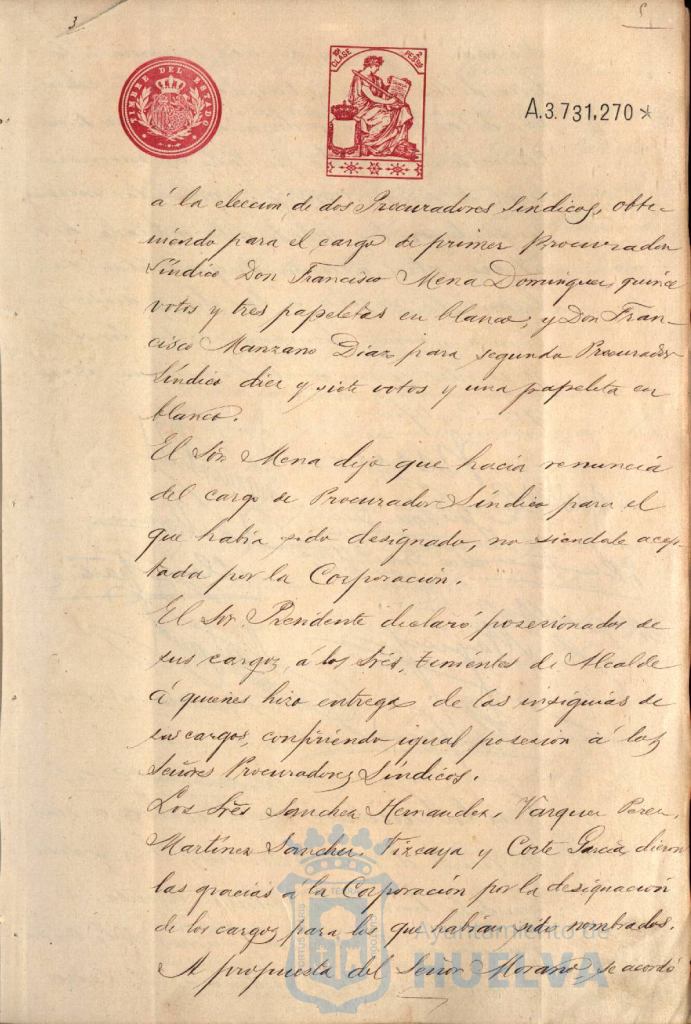 3
5
TIMBRE DEL ESTADO
10ª CLASE
2 PESETAS
A.3.731,270*
á la elección de dos Procuradores Síndicos, obte-
niendo para el cargo de primer Procurador
Síndico Don Francisco Mena Dominguez quince
votos y tres papeletas en blanco, y Don Fran-
cisco Manzano Diaz para segundo Procurador
Síndico diez y siete votos y una papeleta en
blanco.
El Sor. Mena dijo que hacía renuncia
del cargo de Procurador Síndico para el
que había sido designado, no siendole acep-
tada por la Corporación.
El Sor. Presidente declaró posesionados de
sus cargos, á los Sres. tenientes de Alcalde
á quienes hizo entrega de las insignias de
sus cargos, confiriendo igual posesión á los
Señores Procuradores Síndicos.
Los Sres Sanchez Hernandez, Vázquez Perez,
Martínez Sanchez, Vizcaya y Corte García dieron
las gracias á la Corporación por la designación
de los cargos para los que habían sido nombrados.
A propuesta del Señor Morano, se acordó
Ayuntamiento de
HUELVA